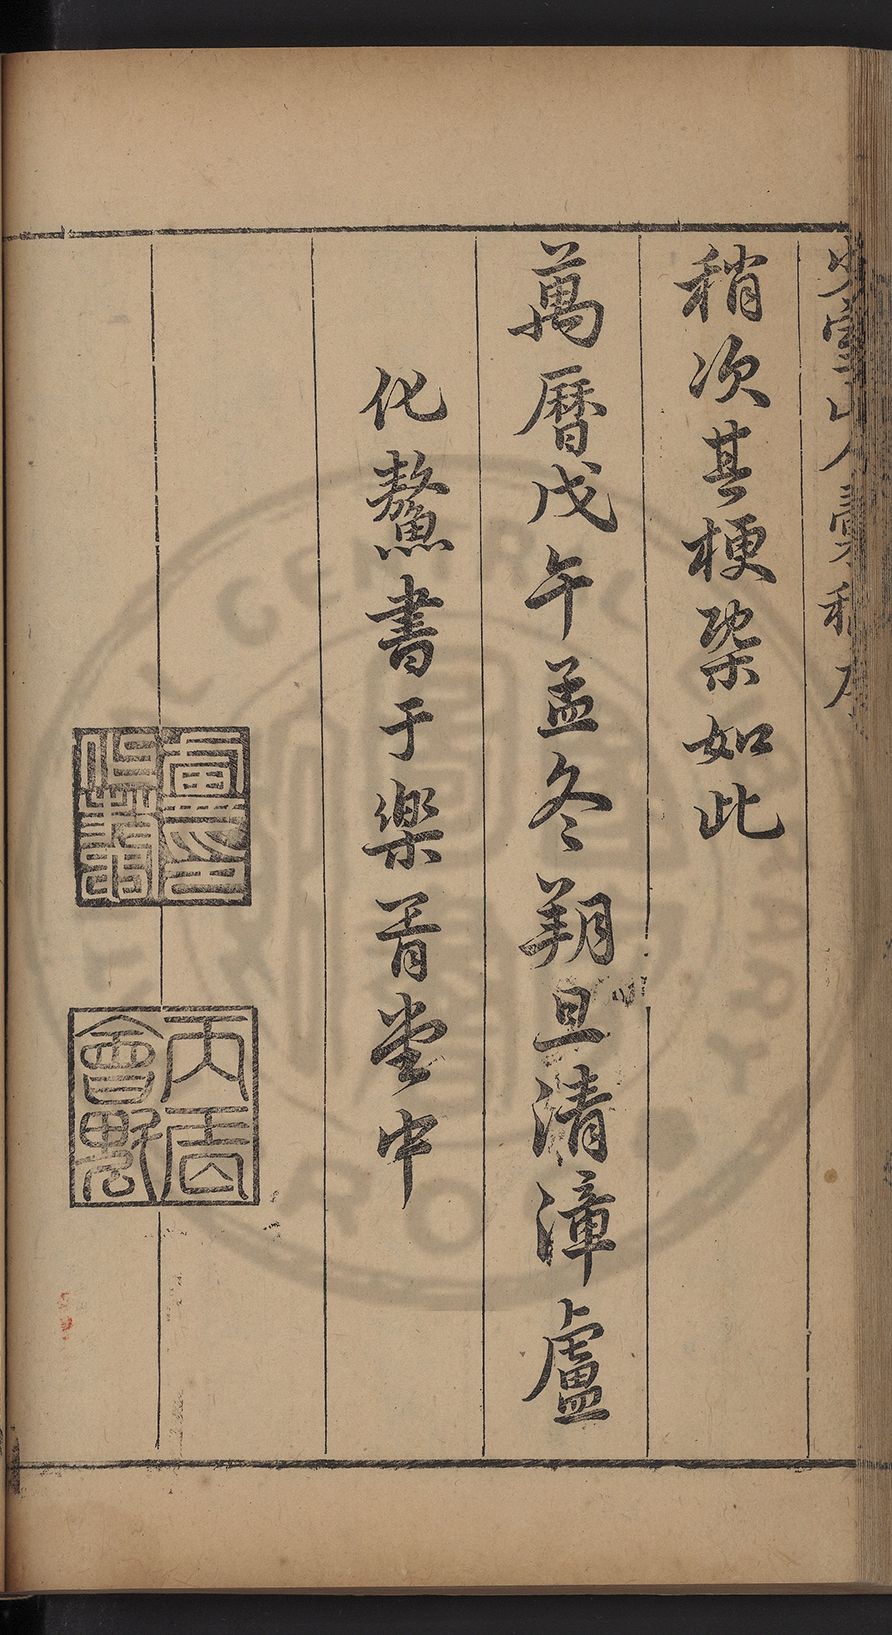 稍次其梗槩如此
萬曆戊午孟冬朔旦清漳盧
化鰲書于樂胥堂中
盧化鰲印
丙辰會魁
CENTRAL